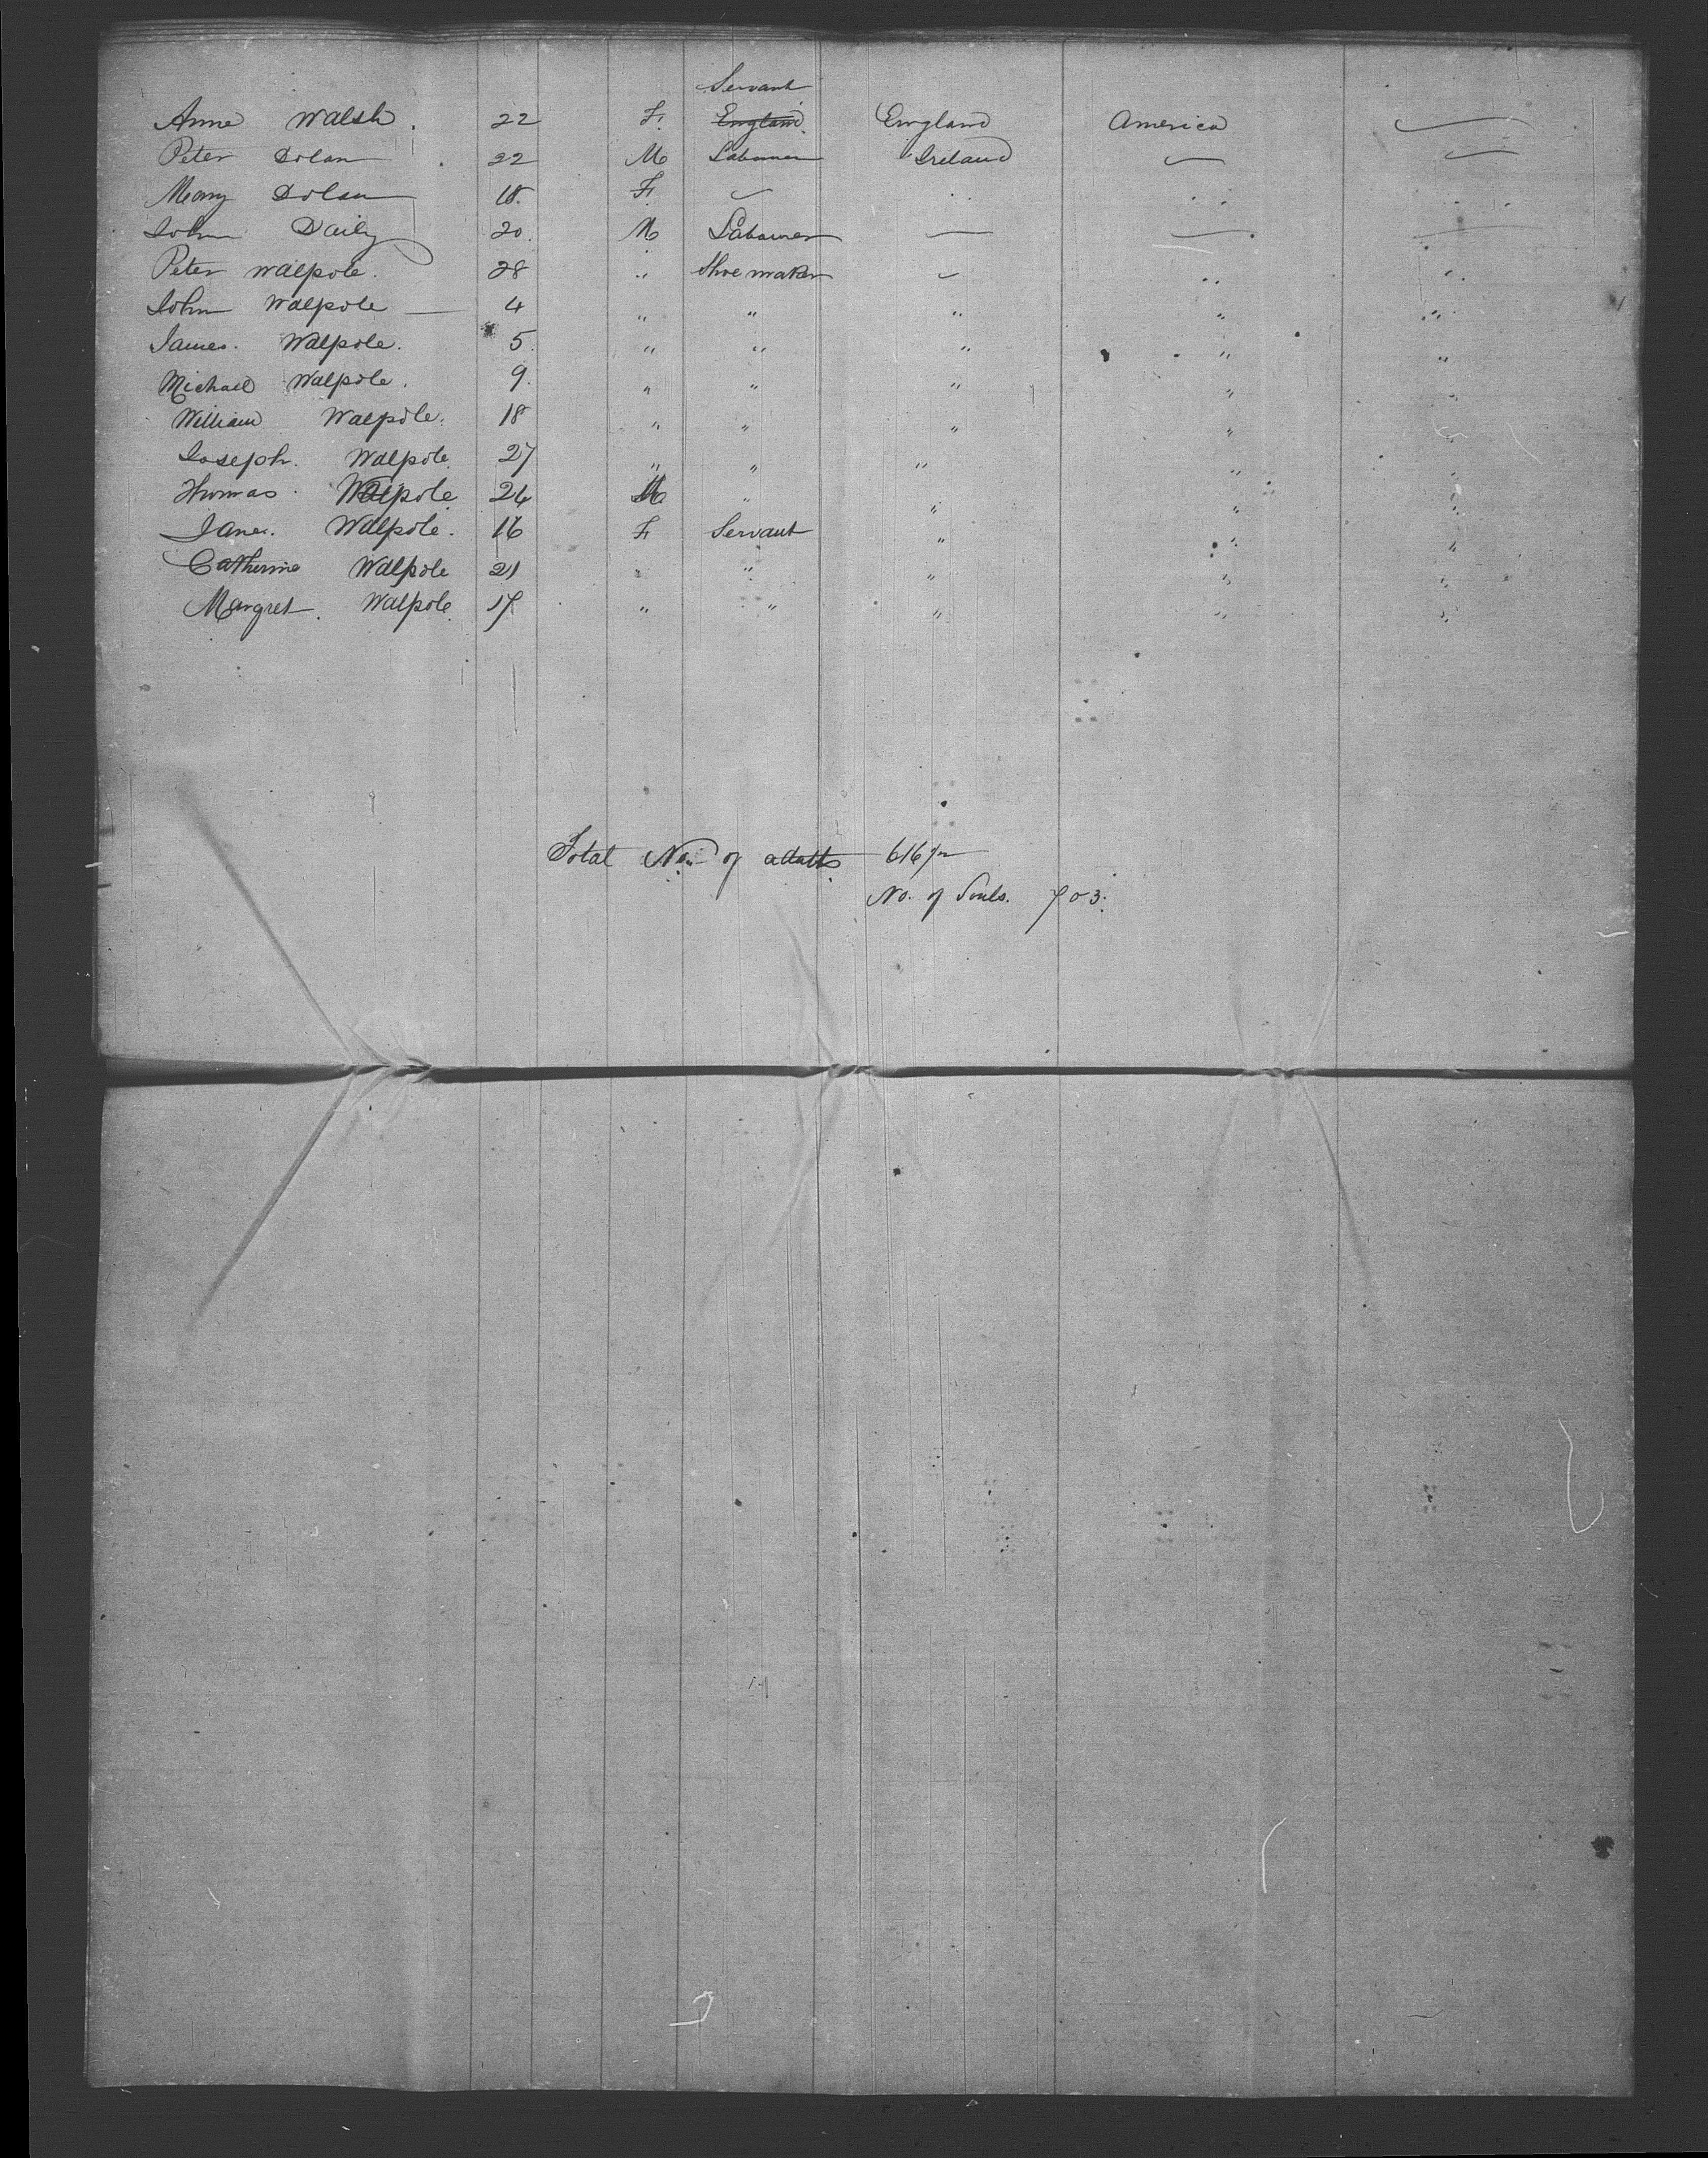 Servant
Anne Walsh. 22 F. England. England America
Peter Dolan 22 M Labourer Ireland
Mary Dolan 18. F.
John Daily 20. M Labourer —
Peter Walpole. 28 " Shoe maker
John Walpole — 4 " " " " "
James. Walpole. 5. " " " " "
Michael Walpole. 9. " " " " "
William Walpole. 18 " " " " "
Joseph. Walpole. 27 " " " " "
Thomas. Walpole 24 M " " " "
Jane. Walpole. 16 F Servant " " "
Catherine Walpole 21 " " " " "
Margret. Walpole. 17 " " " " "
Total No. of adults 616½
No. of Souls. 703.